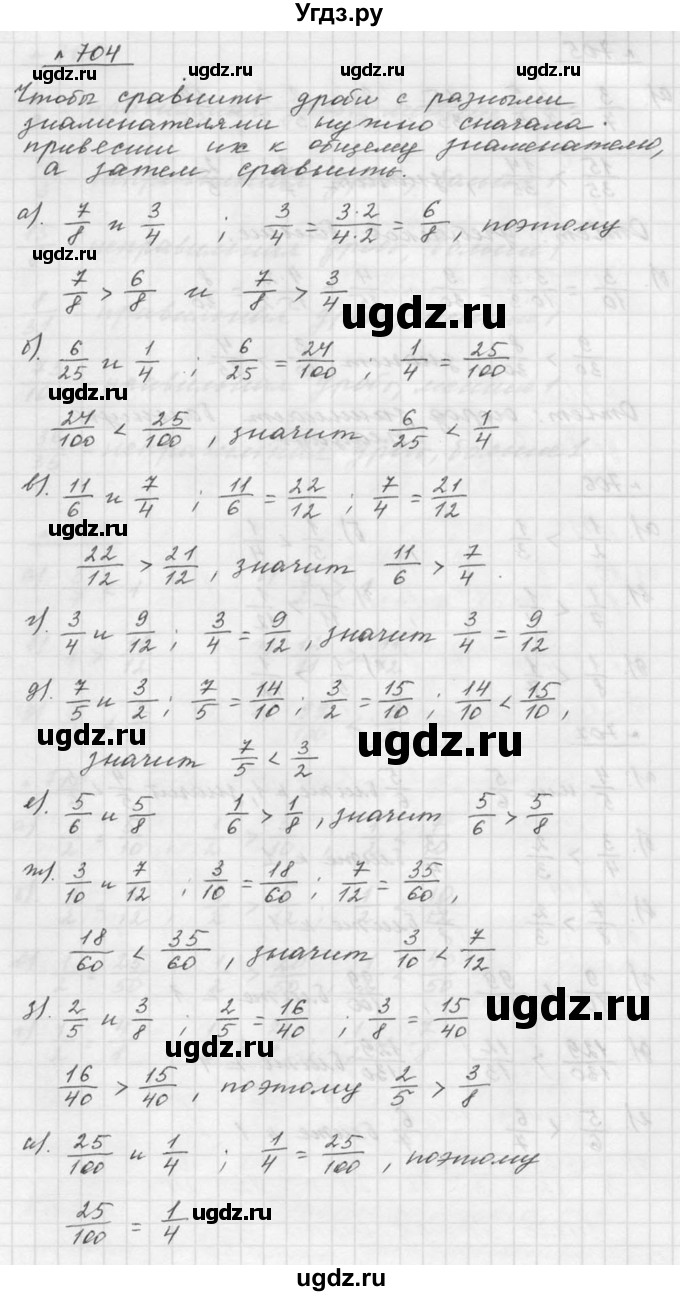 Угдз.ру
№ 704
Чтобы сравнить дроби с разными
знаменателями нужно сначала
привести их к общему знаменателю,
а затем сравнить.
а). 7/8 и 3/4 ; 3/4 = 3·2/4·2 = 6/8, поэтому
7/8 > 6/8 и 7/8 > 3/4
б). 6/25 и 1/4 ; 6/25 = 24/100 ; 1/4 = 25/100
24/100 < 25/100, значит 6/25 < 1/4
в). 11/6 и 7/4 ; 11/6 = 22/12 ; 7/4 = 21/12
22/12 > 21/12, значит 11/6 > 7/4.
г). 3/4 и 9/12 ; 3/4 = 9/12, значит 3/4 = 9/12
д). 7/5 и 3/2 ; 7/5 = 14/10 ; 3/2 = 15/10 ; 14/10 < 15/10,
значит 7/5 < 3/2
е). 5/6 и 5/8 1/6 > 1/8, значит 5/6 > 5/8
ж). 3/10 и 7/12 ; 3/10 = 18/60 ; 7/12 = 35/60,
18/60 < 35/60, значит 3/10 < 7/12
з). 2/5 и 3/8 ; 2/5 = 16/40 ; 3/8 = 15/40
16/40 > 15/40, поэтому 2/5 > 3/8
и). 25/100 и 1/4 ; 1/4 = 25/100, поэтому
25/100 = 1/4
ugdz.ru